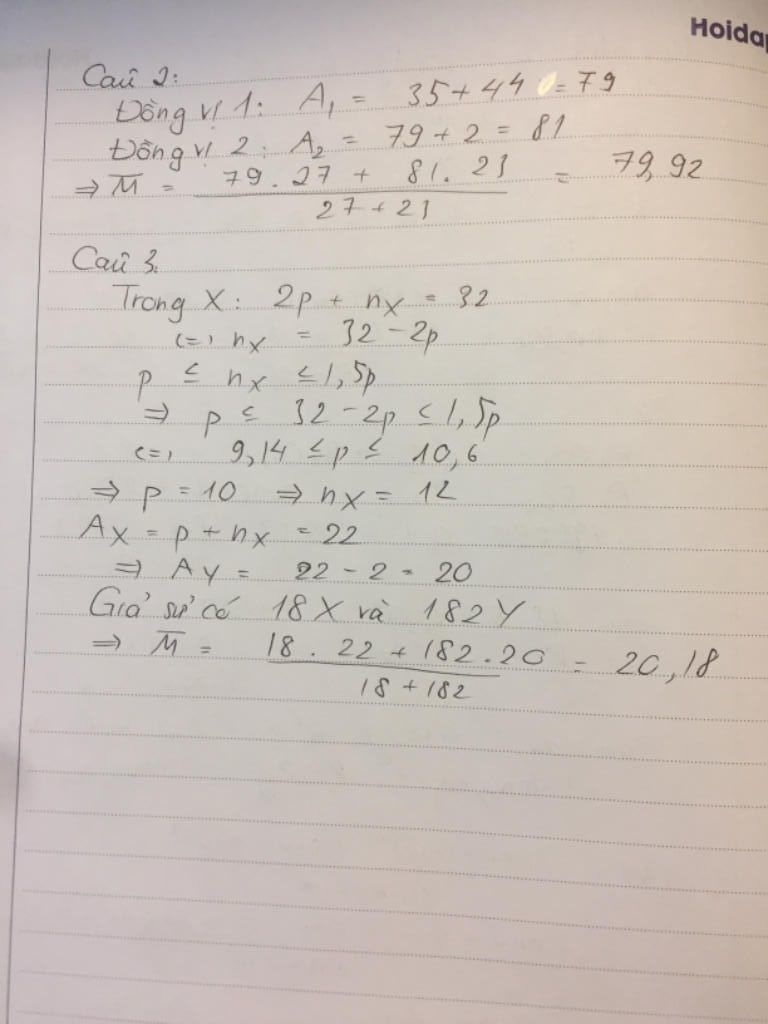 Hoidap
Câu 2:
Đồng vị 1: A₁ = 35 + 44 = 79
Đồng vị 2: A₂ = 79 + 2 = 81
79.27 + 81.23
⇒ M̅ = = 79,92
27 + 23
Câu 3.
Trong X: 2p + nX = 32
(=) nX = 32 - 2p
p ≤ nX ≤ 1,5p
⇒ p ≤ 32 - 2p ≤ 1,5p
(=) 9,14 ≤ p ≤ 10,6
⇒ p = 10 ⇒ nX = 12
AX = p + nX = 22
⇒ AY = 22 - 2 = 20
Giả sử có 18X và 182Y
18.22 + 182.20
⇒ M̅ = = 20,18
18 + 182